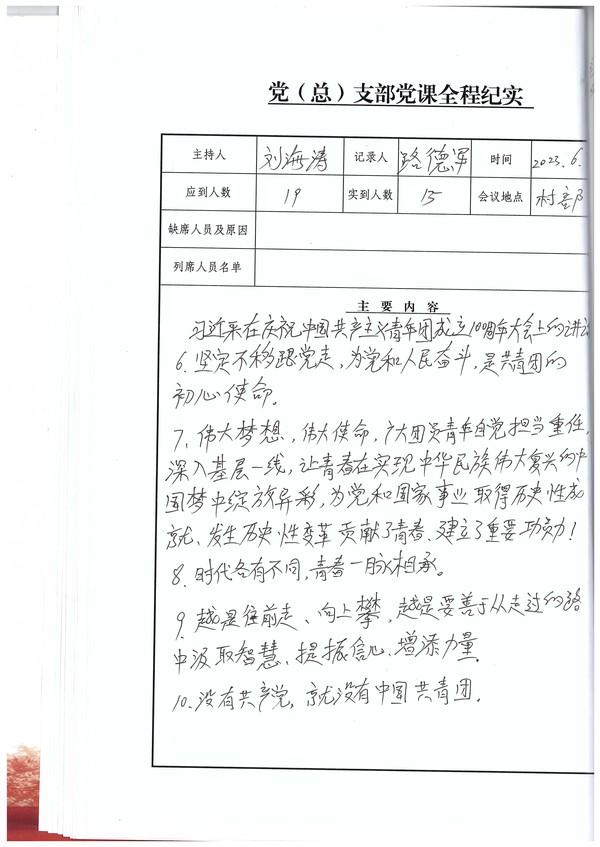 党（总）支部党课全程纪实
主持人 刘海涛 记录人 路德军 时间 2023.6.
应到人数 19 实到人数 15 会议地点 村部
缺席人员及原因
列席人员名单
主要内容
习近平在庆祝中国共产主义青年团成立100周年大会上的讲话
6.坚定不移跟党走，为党和人民奋斗，是共青团的
初心使命.
7、伟大梦想、伟大使命，广大团员青年自觉担当重任，
深入基层一线，让青春在实现中华民族伟大复兴的中
国梦中绽放异彩，为党和国家事业取得历史性成
就、发生历史性变革贡献了青春、建立了重要功勋！
8.时代各有不同，青春一脉相承。
9.越是往前走、向上攀，越是要善于从走过的路
中汲取智慧、提振信心、增添力量.
10.没有共产党，就没有中国共青团.